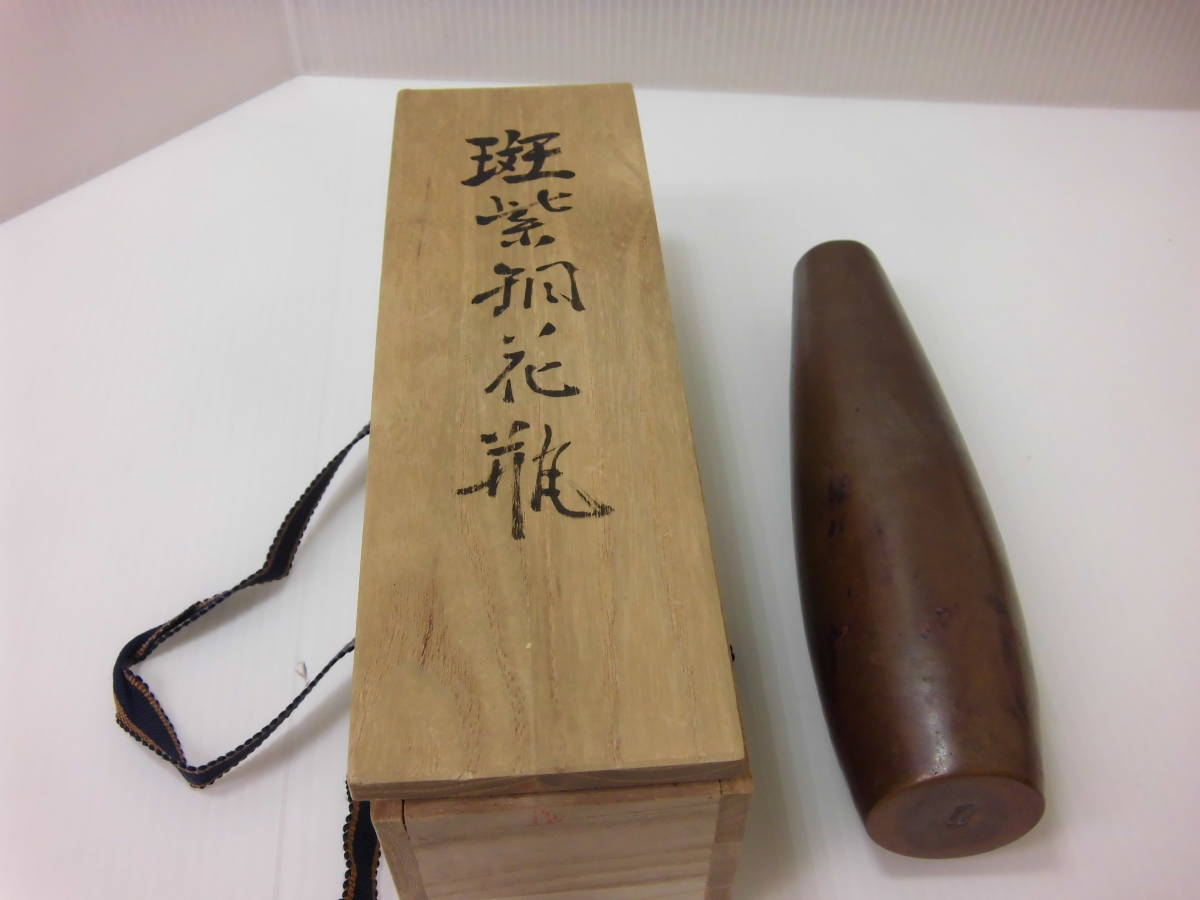 斑紫銅花瓶